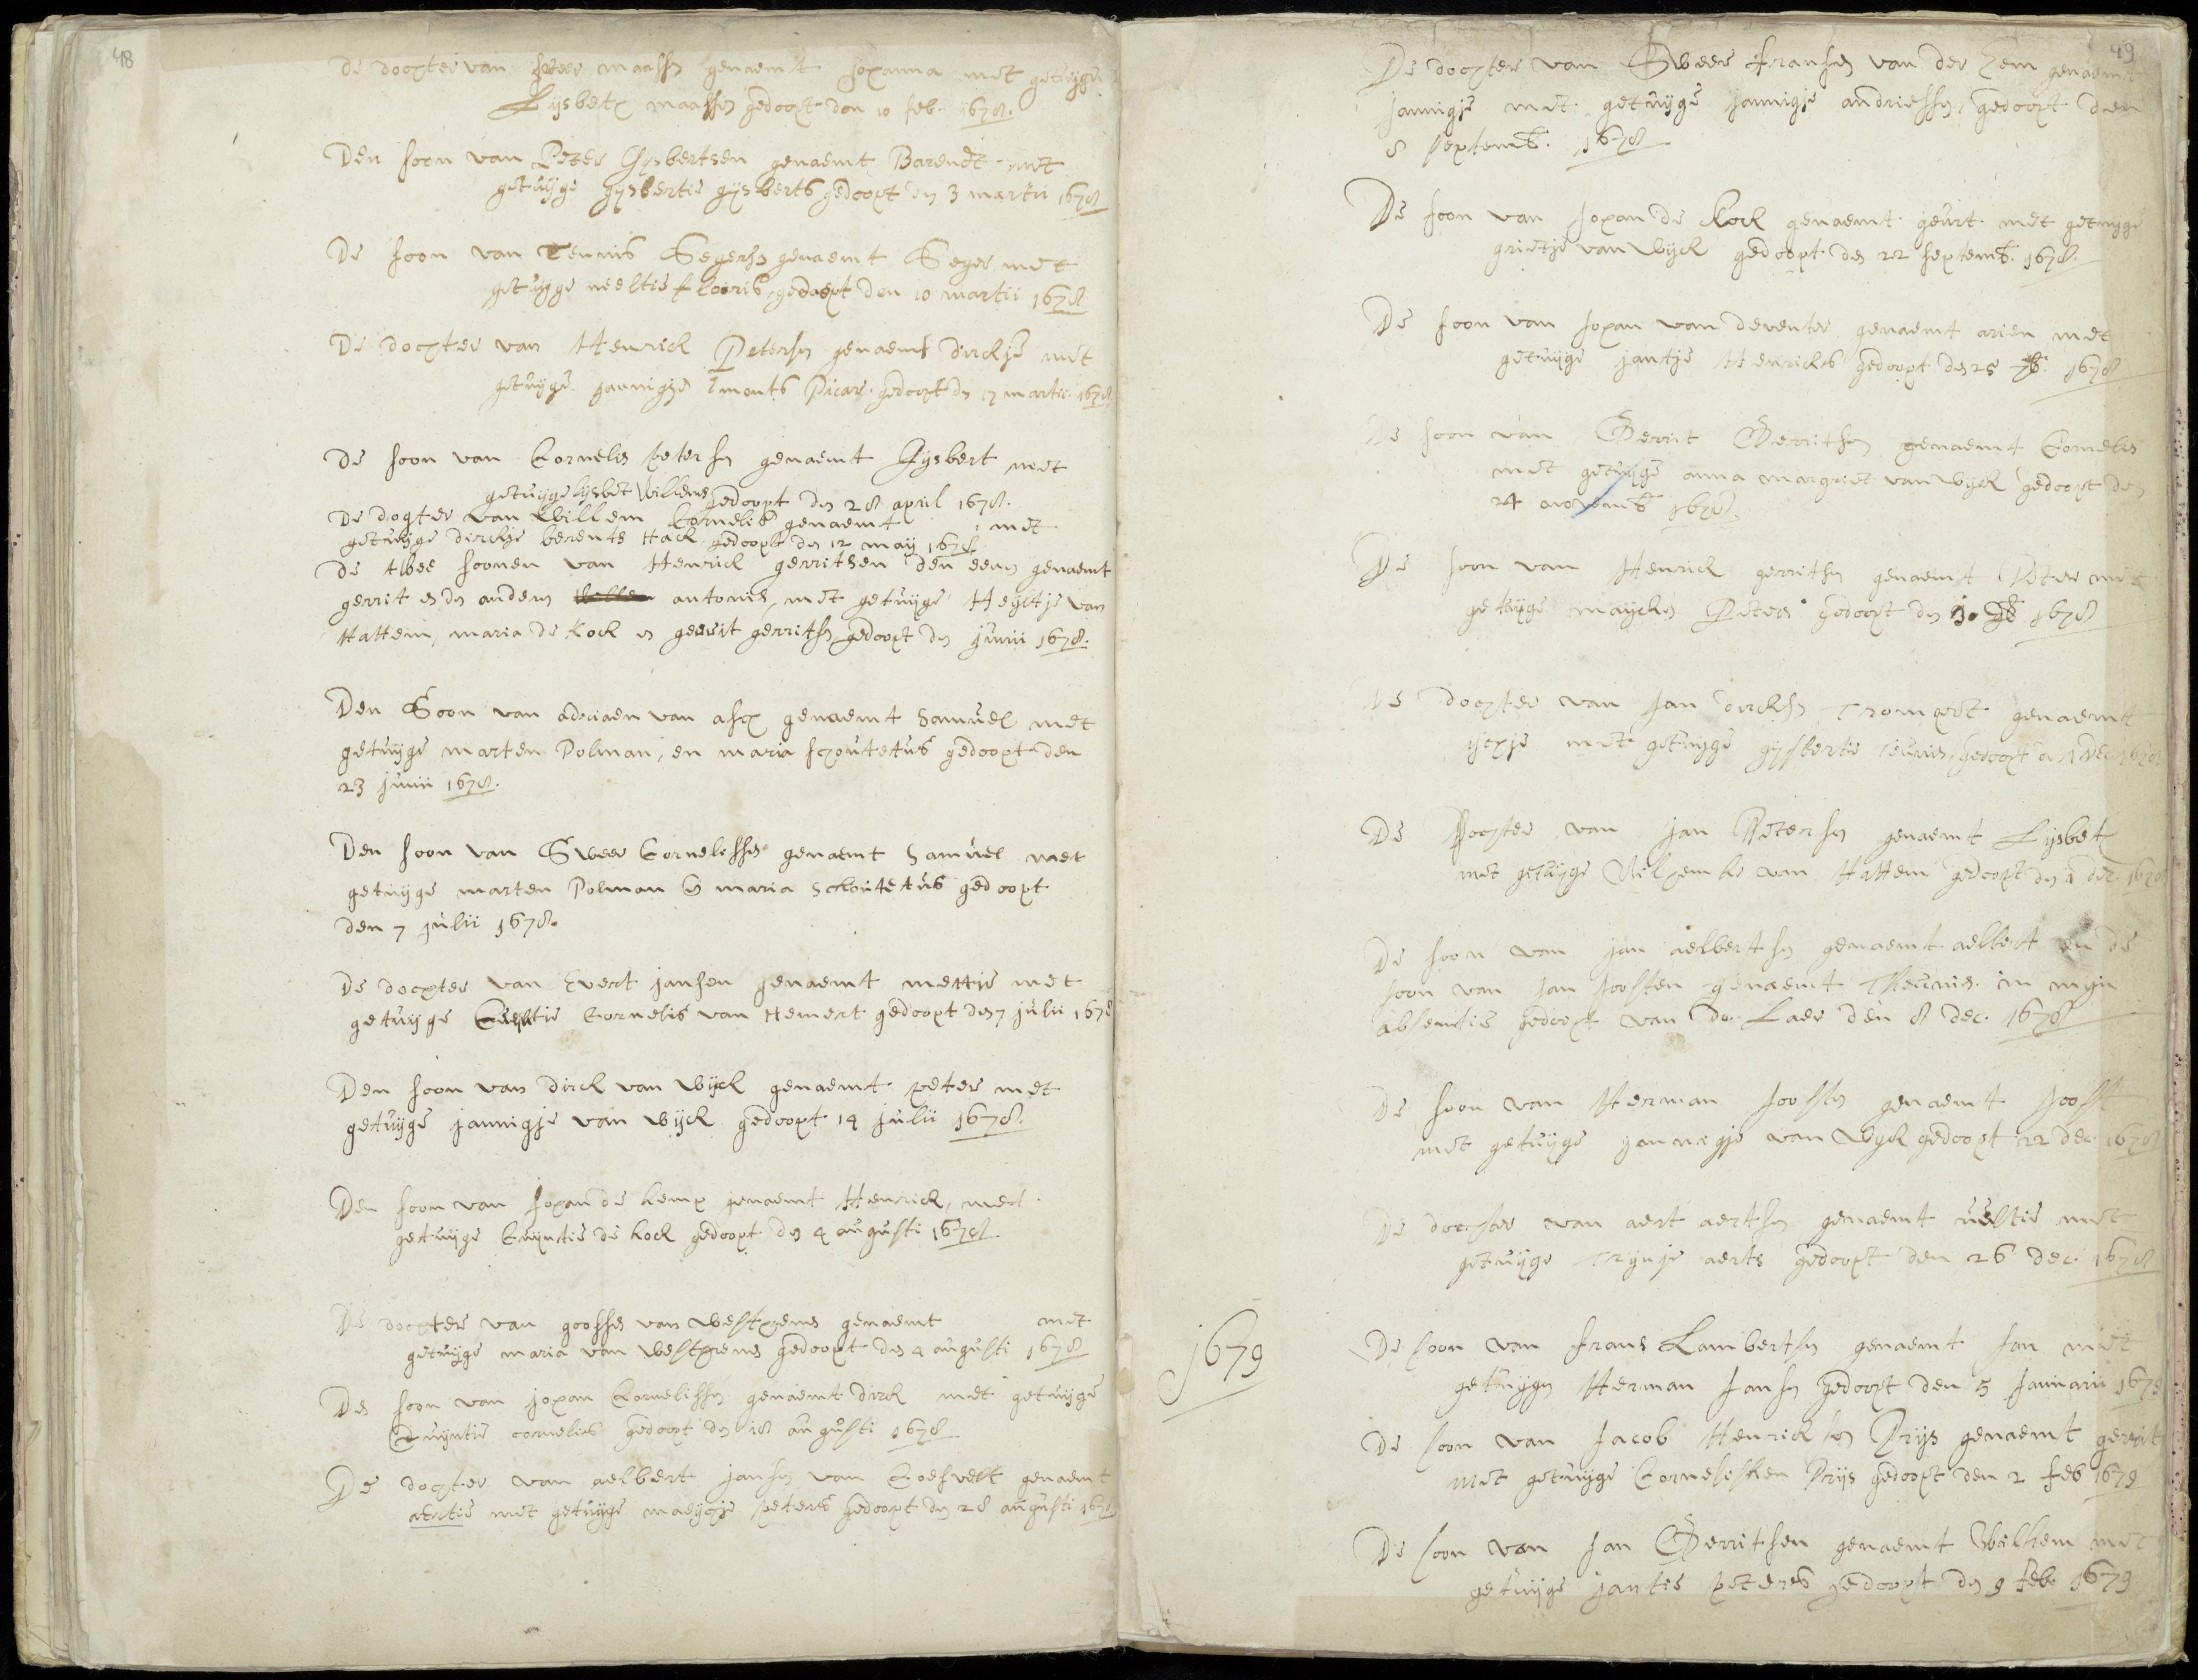 48
de dochter van Peter maassen genaemt Johanna met getuijge
Lijsbeth maassen gedoopt den 10 feb. 1678.
Den soon van Peter Gijsbertsen genaemt Barendt met
getuijge gijsbertie gijsberts gedoopt den 3 martii 1678
De soon van Teunis Segersen genaemt Seger met
getuijge neeltie flooris, gedoopt den 10 martii 1678
De dochter van Henrick Petersen genaemt dirckje met
getuijge jannigje Picar gedoopt den 17 martii 1678
De soon van Cornelis Petersen genaemt Gijsbert met
getuijge lijsbet Willems gedoopt den 28 april 1678.
De dogter van Willem Cornelis genaemt met
getuijge dirckje berents Hack gedoopt den 12 may 1678
De twee soonen van Henrick gerritsen den eenen genaemt
gerrit en den anderen antonis, met getuijge Heijltje van
Hattem, maria de Kock en gerrit gerritsen gedoopt den junii 1678.
Den Soon van adriaen van asch genaemt Samuel met
getuijge marten Polman, en maria schoutetus gedoopt den
23 junii 1678.
Den soon van Sweer Cornelissen genaemt Samuel met
getuijge marten Polman en maria Schoutetus gedoopt
den 7 julii 1678.
De dochter van Evert jansen genaemt mettie met
getuijge Cornelis van Hemert gedoopt den 7 julii 1678
Den soon van dirck van wijck genaemt peter met
getuijge jannigje van wijck gedoopt 14 julii 1678.
Den soon van Johan de kemp genaemt Henrick, met
getuijge de kock gedoopt den 4 augusti 1678
De dochter van goossen van westrhenen genaemt met
getuijge maria van westrhenen gedoopt den 4 augusti 1678
Den soon van johan Cornelissen genaemt dirck met getuijge
cornelis gedoopt den 18 augusti 1678
De dochter van aelbert jansen van Coesvelt genaemt
aertie met getuijge maeijchje peters gedoopt den 28 augusti 1678
49
De dochter van Sweer fransen van der hem genaemt
jannigje met getuijge jannigje andriessen, gedoopt den
8 septemb. 1678
De soon van Johan de Kock genaemt geurt met getuijge
grietje van wijck gedoopt den 22 septemb. 1678.
De soon van Johan van deventer genaemt arien met
getuijge jantje Henricks gedoopt den 25 1678
De soon van Gerrit Gerritsen genaemt Cornelis
met getuijge anna margriet van wijck gedoopt den
24 novemb 1678.
De soon van Henrick gerritsen genaemt Peter met
getuijge maijcken Peters gedoopt den 1678
De dochter van Jan dircksen genaemt
met getuijge gijsbertie teunis, gedoopt den 1 dec. 1678
De Dochter van jan Petersen genaemt Lijsbet
met getuijge van Hattem gedoopt den 1 dec. 1678
De soon van jan aelbertsen genaemt aelbert en de
soon van Jan Joosten genaemt Theunis in mijn
absentie gedoopt van do. Laer den 8 dec. 1678
De soon van Herman Joosten genaemt Joost
met getuijge jannegje van wijck gedoopt 22 dec. 1678
De dochter van aert aertsen genaemt neeltie met
getuijge Trijntje aerts gedoopt den 26 dec. 1678
1679
De soon van frans Lambertsen genaemt Jan met
getuijgen Herman Jansen gedoopt den 5 Januarii 1679
De soon van Jacob Henricksen Prijs genaemt gerrit
met getuijge Cornelisken Prijs gedoopt den 2 feb 1679
De soon van Jan Gerritsen genaemt Willem met
getuijge jantie peters gedoopt den 9 feb. 1679